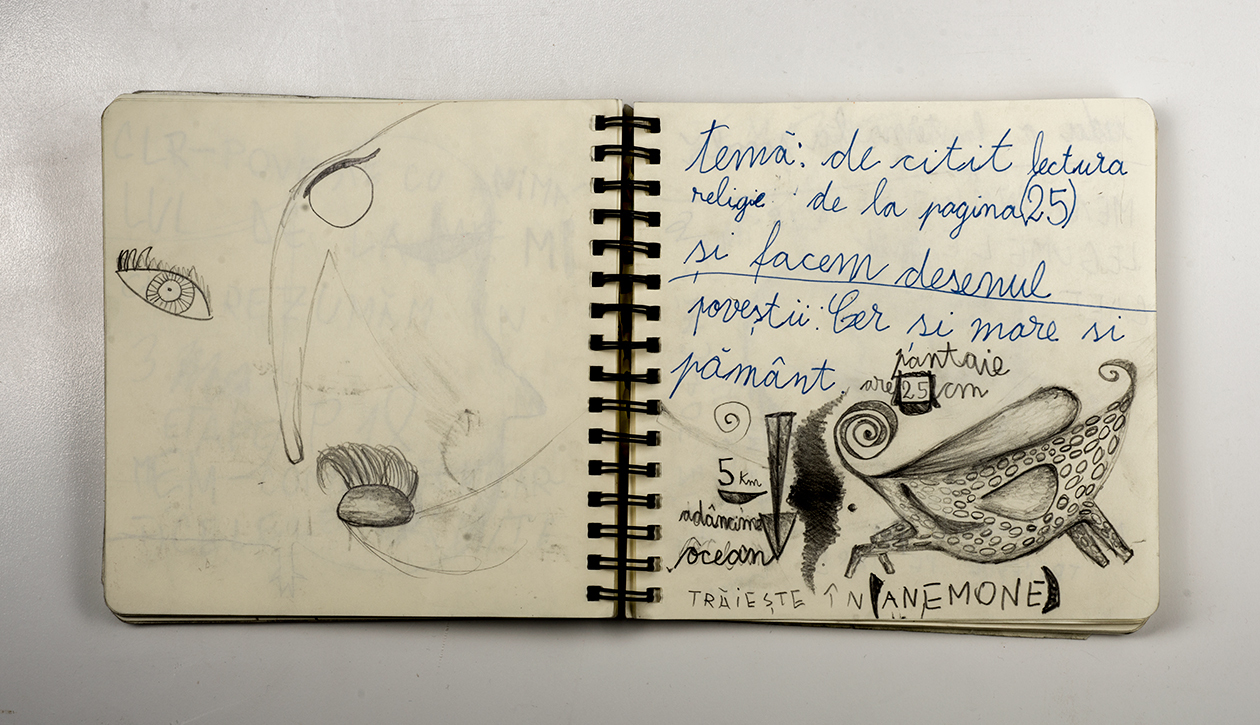 temă: de citit lectura
religie de la pagina (25)
și facem desenul
poveștii: Cer si mare si
pământ.
pantaie
are 25 cm
5 Km
adâncime
ocean
TRĂIEȘTE ÎN (ANEMONE)